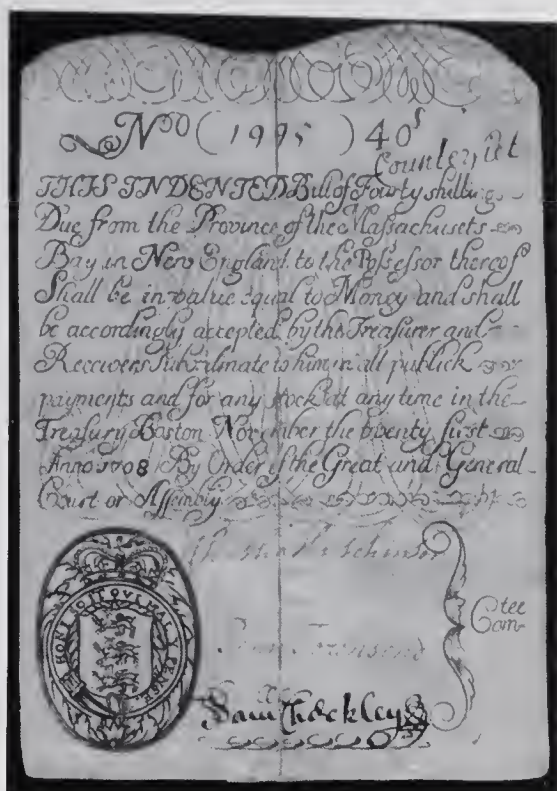 No ( 1995 ) 40s
Counterfeit
THIS INDENTED Bill of Fourty shillings
Due from the Province of the Massachusets
Bay in New England to the Possessor thereof
Shall be in value equal to Money and shall
be accordingly accepted by the Treasurer and
Receivers Subordinate to him in all publick
payments and for any stock at any time in the
Treasury Boston November the twenty first
Anno 1708 By Order of the Great and General
Court or Assembly
Townsend
Sam Checkley
Com-tee
HONI SOIT QUI MAL Y PENSE